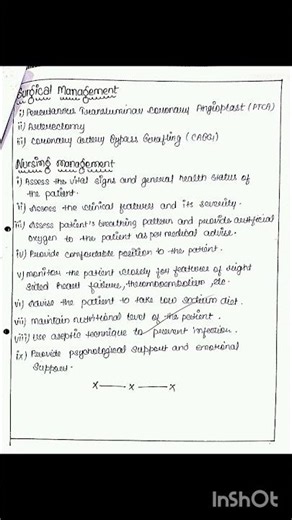 Surgical Management
i) Percutaneous Transluminar Coronary Angioplast (PTCA)
ii) Asterectomy
iii) Coronary Artery Bypass Grafting (CABG)
Nursing Management
i) Assess the vital signs and general health status of
the patient.
ii) Assess the clinical features and its severity.
iii) Assess patient's breathing pattern and provide artificial
oxygen to the patient as per medical advise.
iv) Provide comfortable position to the patient.
v) monitor the patient closely for features of right
sided heart failure, thromboembolism, etc.
vi) Advise the patient to take low sodium diet.
vii) maintain nutritional level of the patient.
viii) Use aseptic technique to prevent infection.
ix) Provide psychological support and emotional
support.
x — x — x
InShOt